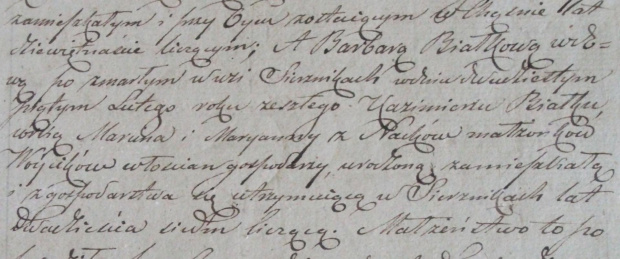 zamieszkałym i przy Ojcu zostaiącym w Chęsnie lat
dziewiętnaście liczącym; A Barbarą Białkową wdo=
wą po zmarłym w wsi Sierznikach w dniu dwudziestym
piątym Lutego roku zeszłego Kazimierzu Białku
córką Marcina i Maryanny z Maćków małżonków
Wóycików włościan gospodarzy, urodzoną, zamieszkałą
i z gospodarstwa się utrzymuiącą w Sierznikach lat
dwadzieścia siedm liczącą. Małżeństwo to po